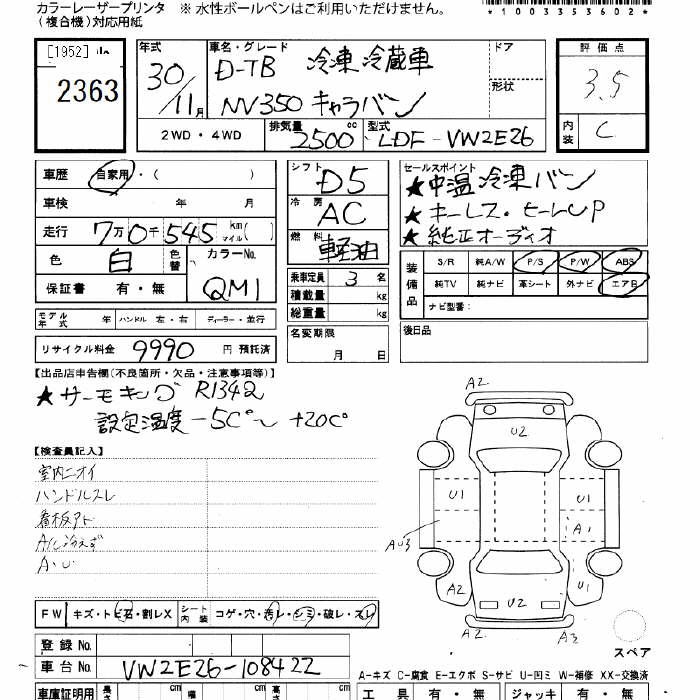 カラーレーザープリンタ ※ 水性ボールペンはご利用いただけません。
(複合機)対応用紙
*1003353602*
[1952]
2363
年式 30/11月
車名・グレード D-TB 冷凍冷蔵車
NV350 キャラバン
ドア
形状
評価点 3.5
内装 C
2WD・4WD
排気量 2500cc
型式 LDF-VW2E26
車歴 自家用・( )
車検 年 月
走行 7万0千545 km マイル( )
色 白 色替 カラーNo. QM1
保証書 有・無
モデル年式 年 ハンドル 左・右 ディーラー・並行
リサイクル料金 9990 円 預託済
シフト D5
冷房 AC
燃料 軽油
乗車定員 3 名
積載量 kg
総重量 kg
名変期限
月 日
セールスポイント
★中温冷凍バン
★キーレス・ヒールUP
★純正オーディオ
装備品 S/R 純A/W P/S P/W ABS
純TV 純ナビ 革シート 外ナビ エアB
ナビ型番:
後日品
【出品店申告欄(不良箇所・欠品・注意事項等)】
★サーモキング R134a
設定温度-5C°~+20C°
【検査員記入】
室内ニオイ
ハンドルスレ
看板アト
A/C冷えず
A・U
A2
U2
U1 U1
A1
AU3
A2 A2
U2
A3
スペア
FW キズ・トビ石・割レX シート内装 コゲ・穴・汚レ・シミ・破レ・スレ
登録 No.
車台 No. VW2E26-108422
A-キズ C-腐食 E-エクボ S-サビ U-凹ミ W-補修 XX-交換済
車庫証明用 長さ cm 幅 cm cm
工具 有・無 ジャッキ 有・無